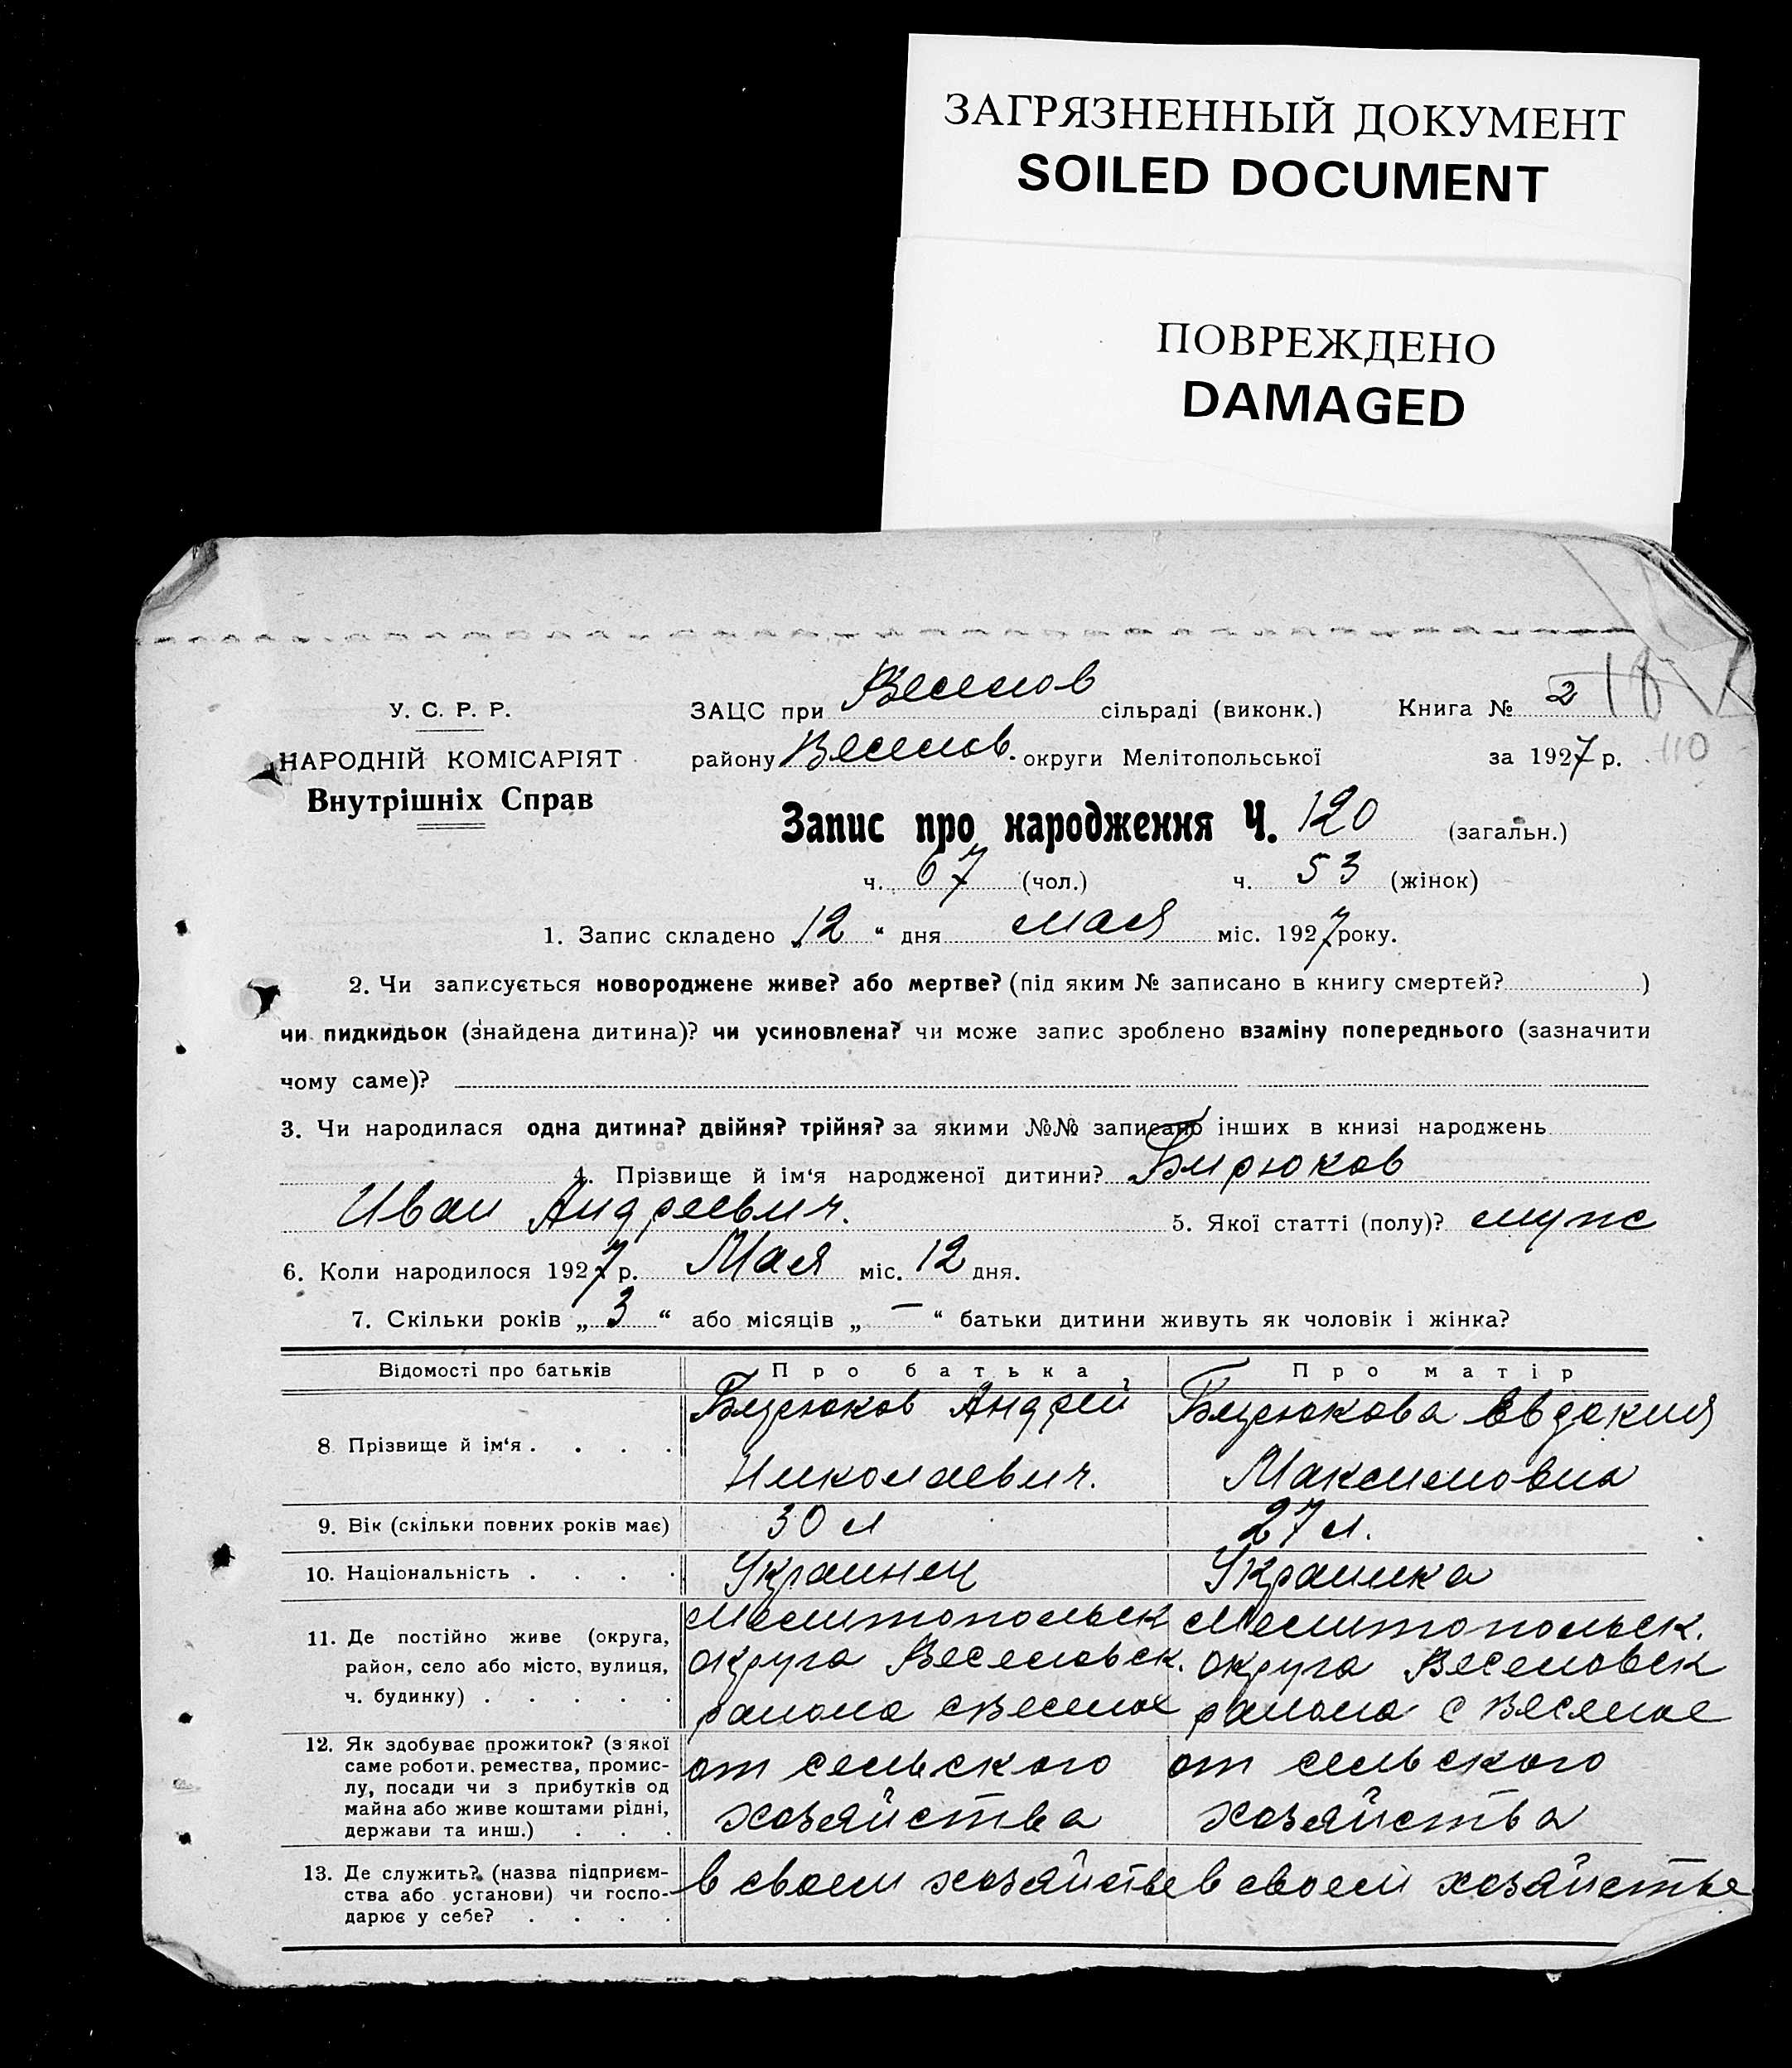 ЗАГРЯЗНЕННЫЙ ДОКУМЕНТ
SOILED DOCUMENT
ПОВРЕЖДЕНО
DAMAGED
У. С. Р. Р.
НАРОДНІЙ КОМІСАРІЯТ
Внутрішніх Справ
ЗАЦС при Веселов сільраді (виконк.) Книга № 2 18
району Веселов. округи Мелітопольської за 1927 р. 110
Запис про народження Ч. 120 (загальн.)
ч. 67 (чол.) ч. 53 (жінок)
1. Запис складено „12“ дня мая міс. 1927 року.
2. Чи записується новороджене живе? або мертве? (під яким № записано в книгу смертей? )
чи пидкидьок (знайдена дитина)? чи усиновлена? чи може запис зроблено взаміну попереднього (зазначити
чому саме)?
3. Чи народилася одна дитина? двійня? трійня? за якими №№ записано інших в книзі народжень
4. Прізвище й ім‘я народженої дитини? Бирюков
Иван Андреевич. 5. Якої статті (полу)? муж
6. Коли народилося 1927 р. Мая міс. 12 дня.
7. Скільки років „3“ або місяців „—“ батьки дитини живуть як чоловік і жінка?
Відомості про батьків Про батька Про матір
8. Прізвище й ім‘я . . . . Бирюков Андрей Бирюкова Евдокия
Николаевич. Максимовна
9. Вік (скільки повних років має) 30 л 27 л.
10. Національність . . . . Украинец Украинка
11. Де постійно живе (округа, Мелитопольск Мелитопольск.
район, село або місто, вулиця, округа Веселовск. округа Веселовск
ч. будинку) . . . . . района с Веселое района с Веселое
12. Як здобуває прожиток? (з якої
саме роботи, ремества, промис- от сельского от сельского
лу, посади чи з прибутків од
майна або живе коштами рідні, хозяйства хозяйства
держави та инш.) . . .
13. Де служить? (назва підприєм- в своем хозяйстве в своем хозяйстве
ства або установи) чи госпо-
дарює у себе? . . . .